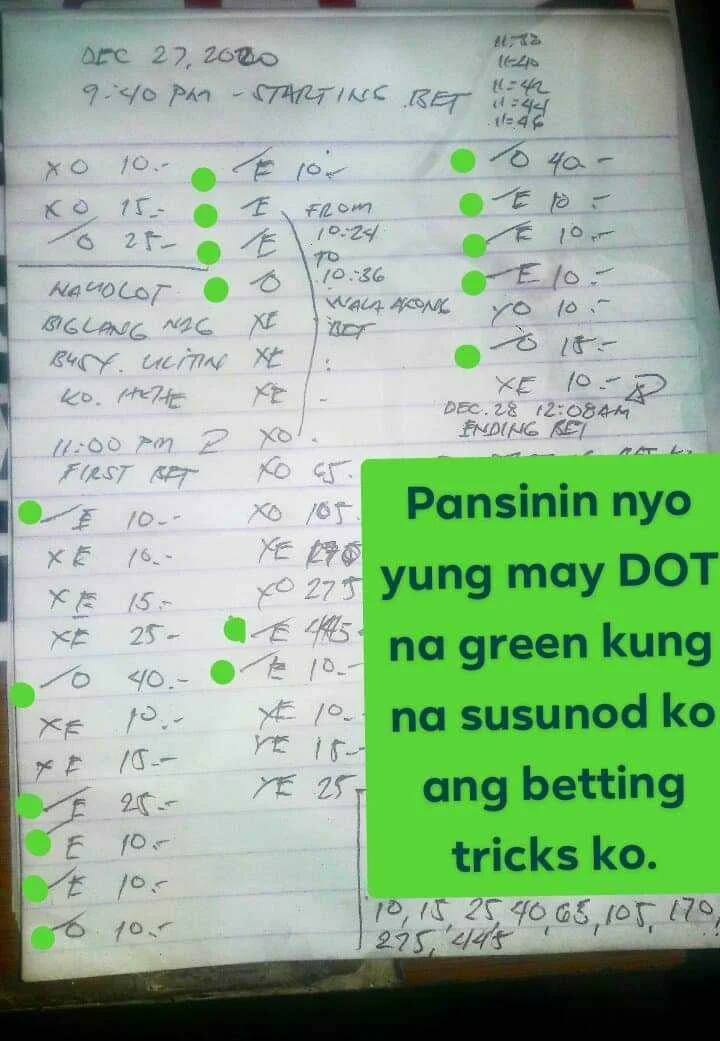 DEC 27, 2020
9:40 PM - STARTING BET
11:40
11=42
11=44
11=46
XO 10.-
XO 15-
/O 25-
NAUDLOT
BIGLANG NAG
BUSY. ULITIN
KO.
11:00 PM
FIRST BET
/E 10.-
XE 10.-
XE 15-
XE 25-
/O 40.-
XE 10.-
XE 15-
/E 25-
/E 10.-
/E 10.-
/O 10.-
/E 10.-
/E
/E
/O
XE
XE
XE
XO
XO 65.
XO 105.
XE 170
XO 275
/E 445-
/E 10.-
XE 10.-
XE 15-
XE 25
FROM
10:24
TO
10:36
WALA AKONG
BET
/O 40-
/E 10-
/E 10.-
/E 10.-
XO 10.-
/O 15-
XE 10.-
DEC. 28 12:08AM
ENDING BET
Pansinin nyo
yung may DOT
na green kung
na susunod ko
ang betting
tricks ko.
10, 15, 25, 40, 65, 105, 170,
275, 445